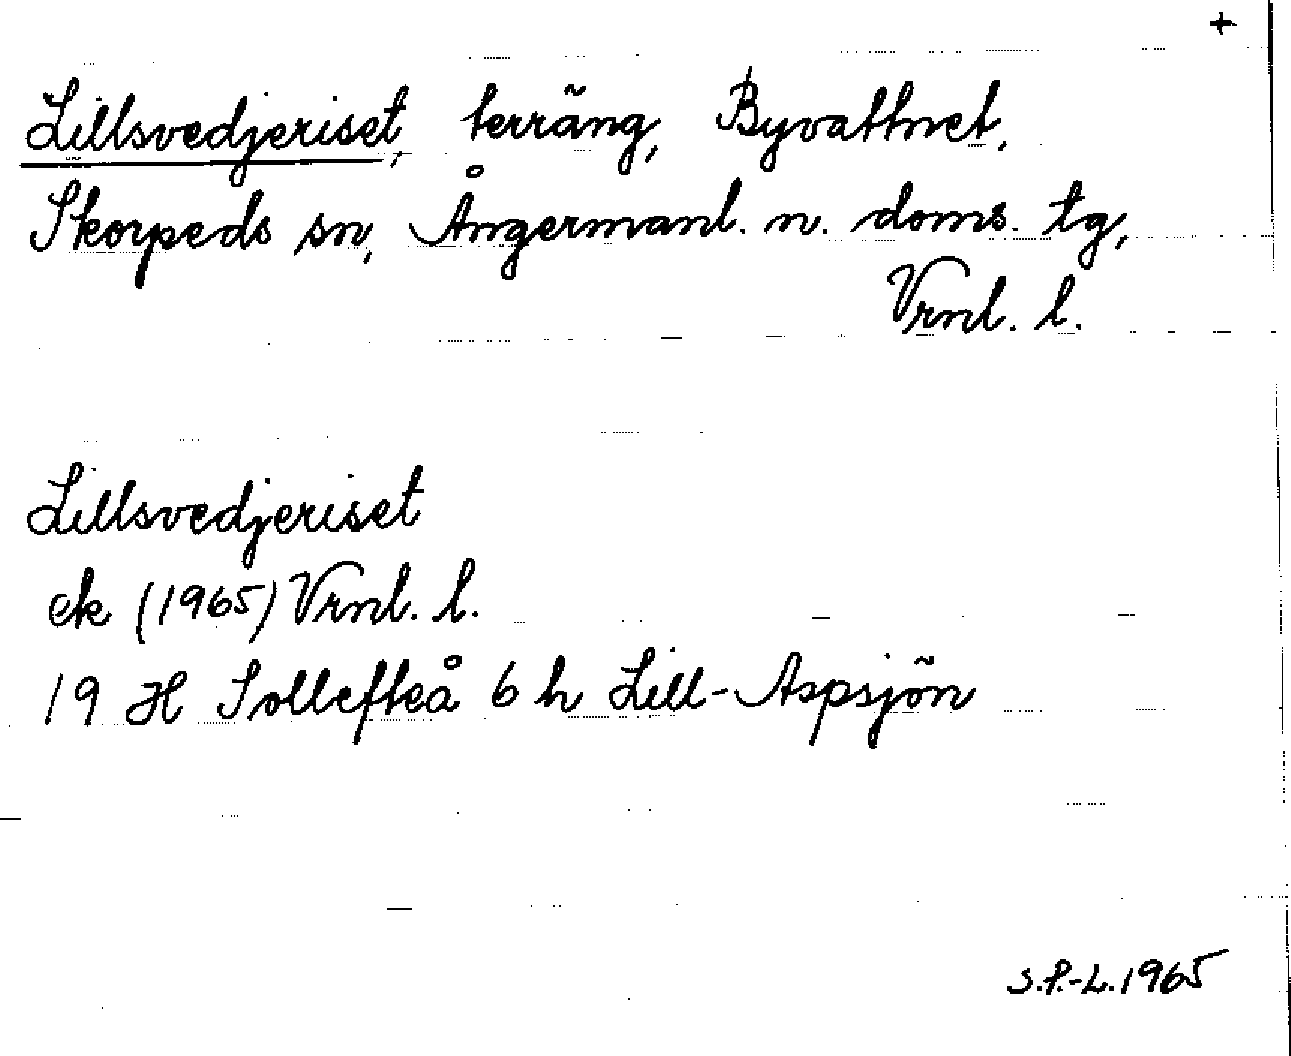 +
Lillsvedjeriset, terräng, Byvattnet,
Skorpeds sn, Ångermanl. n. doms. tg,
Vrnl. l.
Lillsvedjeriset
ek (1965) Vrnl. l.
19 H Sollefteå 6 h Lill-Aspsjön
S.P.-L. 1965